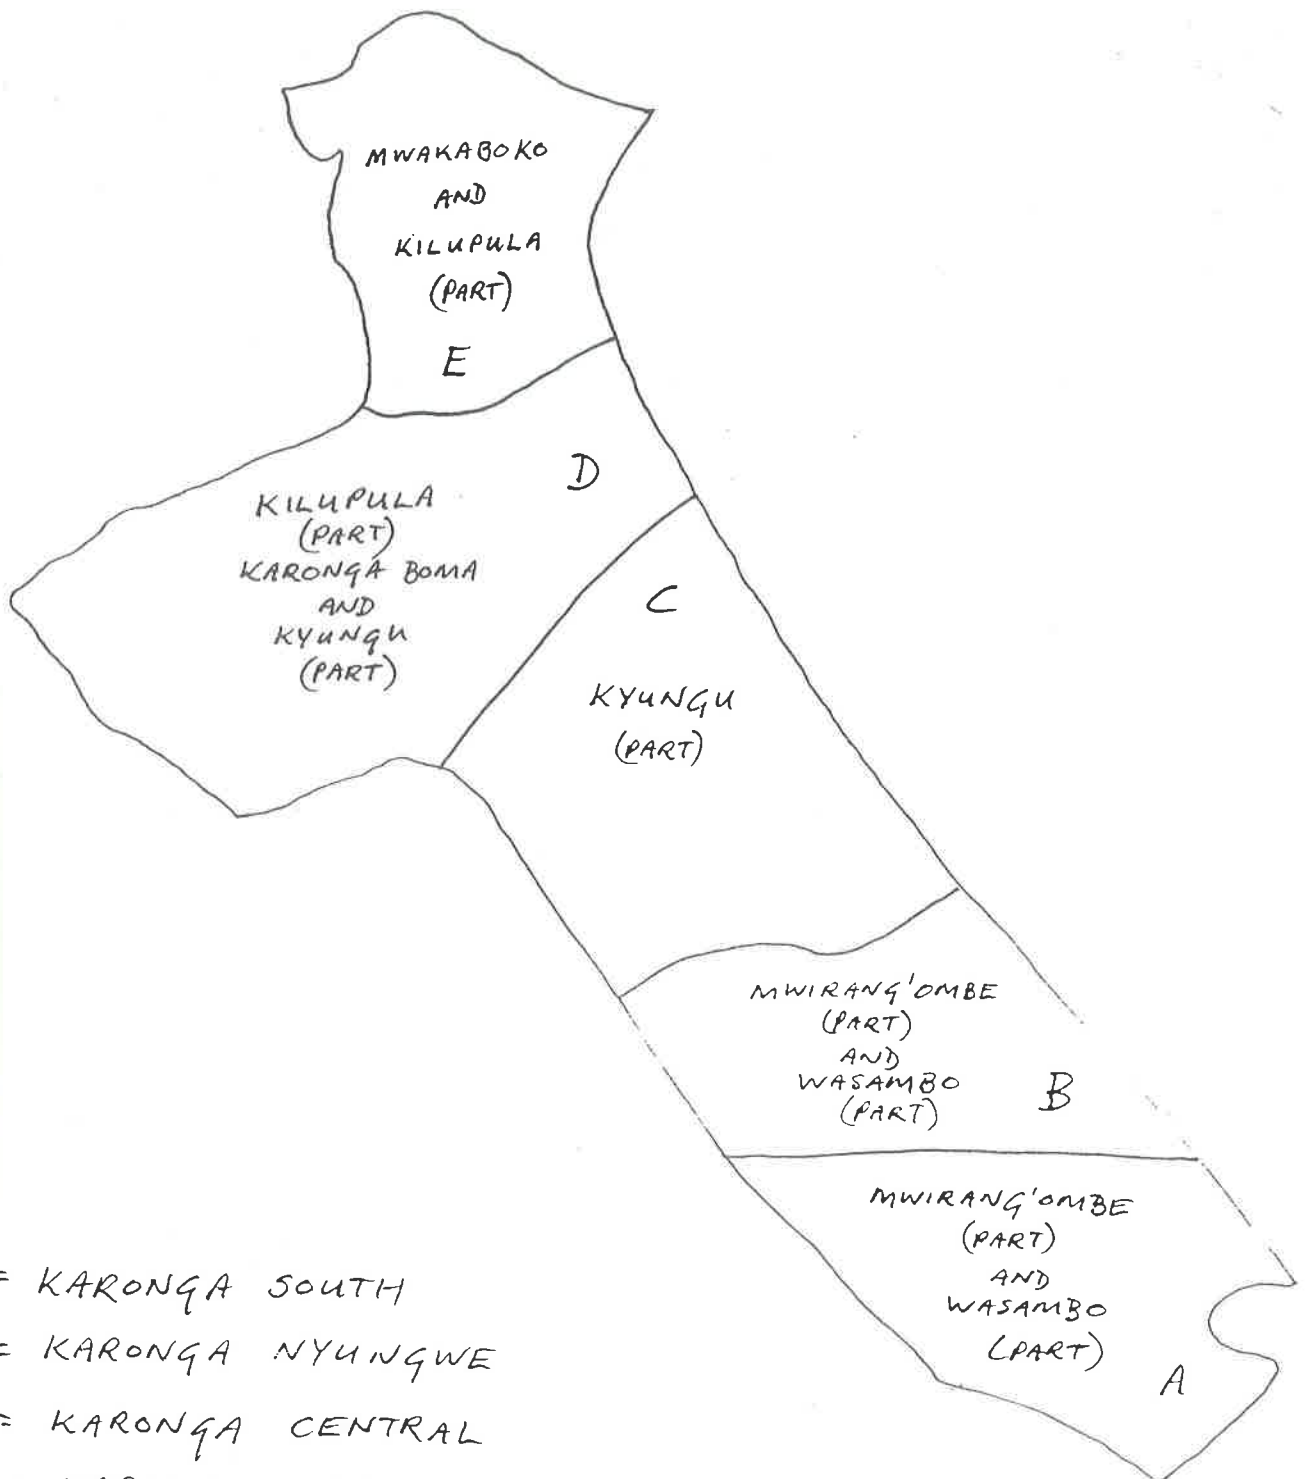 MWAKABOKO
AND
KILUPULA
(PART)
E
D
KILUPULA
(PART)
KARONGA BOMA
AND
KYUNGU
(PART)
C
KYUNGU
(PART)
MWIRANG'OMBE
(PART)
AND
WASAMBO
(PART)
B
MWIRANG'OMBE
(PART)
AND
WASAMBO
(PART)
A
= KARONGA SOUTH
= KARONGA NYUNGWE
= KARONGA CENTRAL